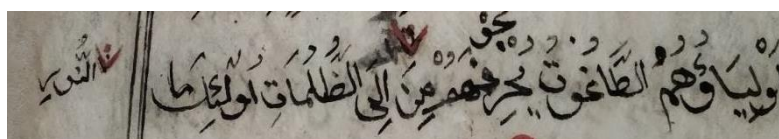 جو
وْلِيَاؤُهُمُ الطَّاغُوتُ يُخْرِ نَهُمْ مِنَ اِلَى الظُّلُمَاتِ اُولٰئِكَ
النُّورِ